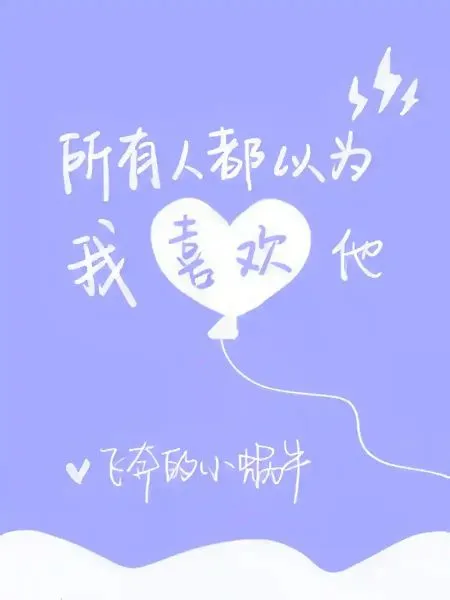 所有人都以为
我喜欢他
飞奔的小蜗牛